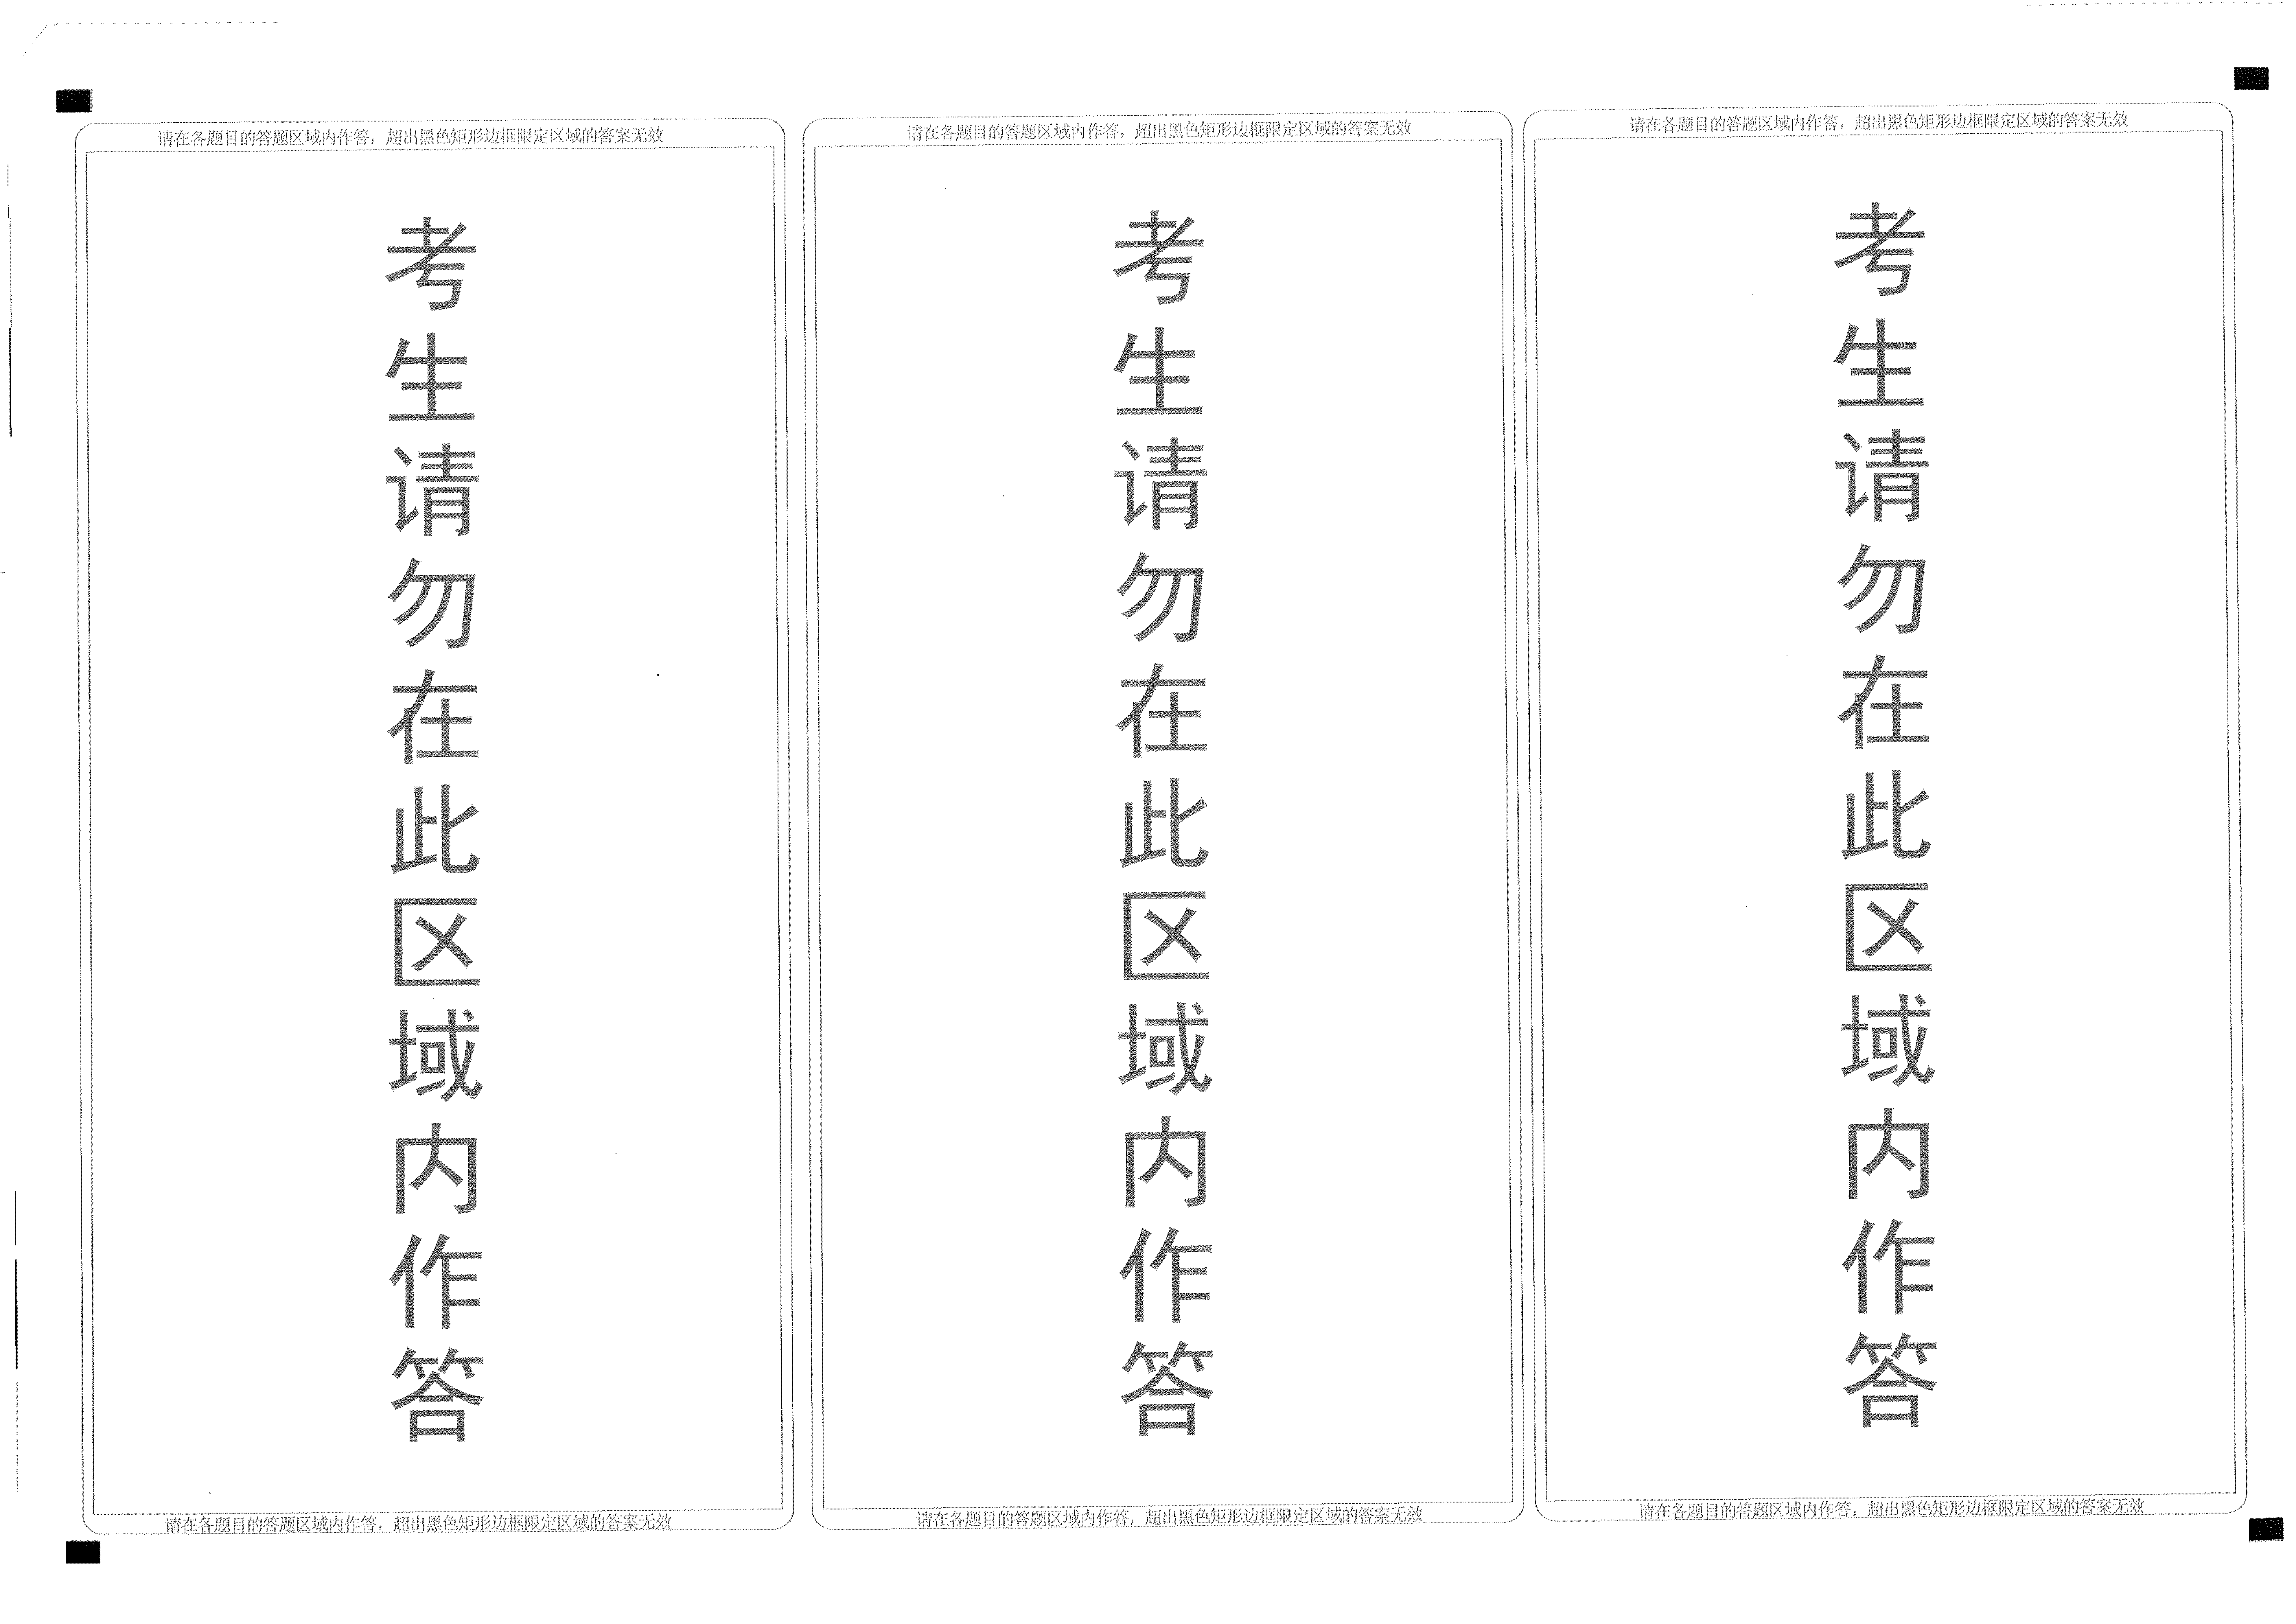 请在各题目的答题区域内作答，超出黑色矩形边框限定区域的答案无效
考生请勿在此区域内作答
请在各题目的答题区域内作答，超出黑色矩形边框限定区域的答案无效
请在各题目的答题区域内作答，超出黑色矩形边框限定区域的答案无效
考生请勿在此区域内作答
请在各题目的答题区域内作答，超出黑色矩形边框限定区域的答案无效
请在各题目的答题区域内作答，超出黑色矩形边框限定区域的答案无效
考生请勿在此区域内作答
请在各题目的答题区域内作答，超出黑色矩形边框限定区域的答案无效